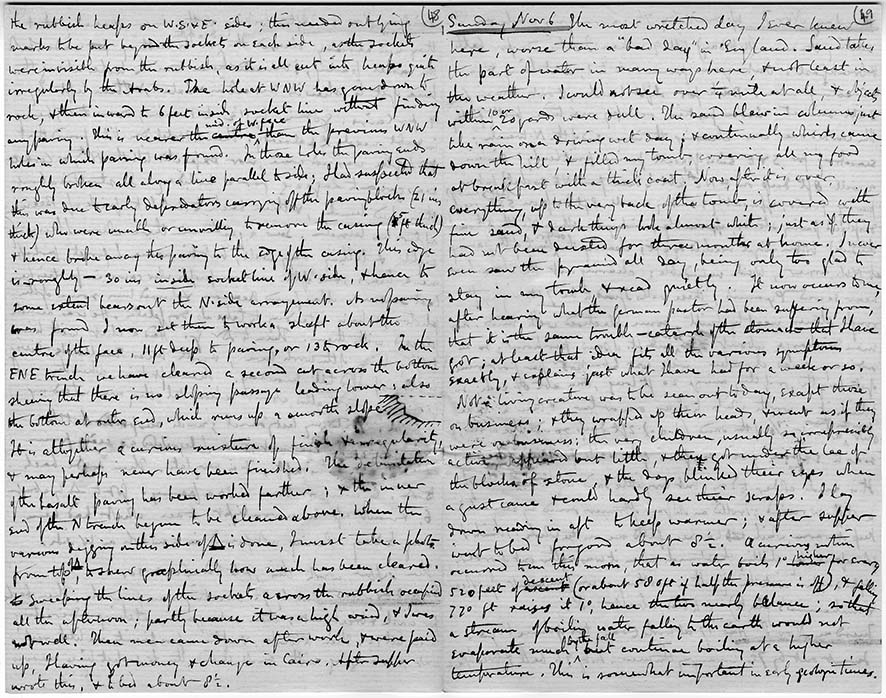 48
the rubbish heaps on W. S. & E. sides; this needed outlying
marks to be put beyond the sockets on each side, as the sockets
were invisible from the rubbish, as it is all cut into heaps quite
irregularly by the Arabs. The hole at WNW has gone down to
rock, & then inward to 6 feet inside socket line without finding
any paving; this is nearer the centre mid. of W. face than the previous WNW
holes in which paving was found. In those holes the paving ends
roughly broken all along a line parallel to side; I had suspected that
this was due to early depredators carrying off the paving blocks (21 ins
thick) who were unable or unwilling to remove the casing (5 ft thick)
& hence broke away the paving to the edge of the casing. This edge
is roughly – 30 ins inside socket line of W. side, & hence to
some extent bears out the N. side arrangement. As no paving
was found I now set them to work a shaft about the
centre of the face, 11 ft deep to paving, or 13 to rock. In the
ENE trench we have cleared a second cut across the bottom
shewing that there is no sloping passage leading lower; also
the bottom at outer end, which runs up a smooth slope
It is altogether a curious mixture of finish & irregularity,
& may perhaps never have been finished. The delimitation
of the basalt paving has been worked farther; & the inner
end of the N trench begun to be cleaned above. When the
various digging on this side of Δ is done, I must take a photo.
from top Δ to shew graphically how much has been cleared.
Sweeping the lines of the sockets across the rubbish occupied
all the afternoon; partly because it was a high wind, & I was
not well. Then men came down after work, & were paid
up, I having got money & change in Cairo. After supper
wrote this, & to bed about 8½.
49
Sunday Nov 6 The most wretched day I ever knew
here, worse than a "bad day" in England. Sand takes
the part of water in many ways here, & not least in
the weather. I could not see over ¼ mile at all, & objects
within 10 or 20 yards were dull. The sand blew in columns, just
like rain on a driving wet day; & continually whirls came
down the hill & filled my tomb, covering all my food
at breakfast with a thick coat. Now after it is over,
everything, up to the very back of the tomb, is covered with
fine sand, & dark things look almost white; just as if they
had not been dusted for three months at home. I never
even saw the pyramid all day, being only too glad to
stay in my tomb & read quietly. It now occurs to me,
after hearing what the german pastor had been suffering from,
that it is the same trouble – catarrh of the stomach that I have
got; at least that idea fits all the various symptoms
exactly, & explains just what I have had for a week or so.
Not a living creature was to be seen out to day, except those
on business; & they wrapped up their heads & went as if they
were on business; the very children, usually so irrepressibly
active appeared but little & they got under the lee of
the blocks of stone, & the dogs blinked their eyes when
a gust came & could hardly see their scraps. I lay
down reading in aft to keep warmer; & after supper
went to bed for good about 8½. A curious notion
occurred to me this morn, that as water boils 1° higher for every
520 feet of descent (or about 580 ft if half the pressure is off), & falling
770 ft raises it 1°, hence the two nearly balance; so that
a stream of boiling water falling to the earth would not
evaporate much by its fall but continue boiling at a higher
temperature. This is somewhat important in early geologic times.